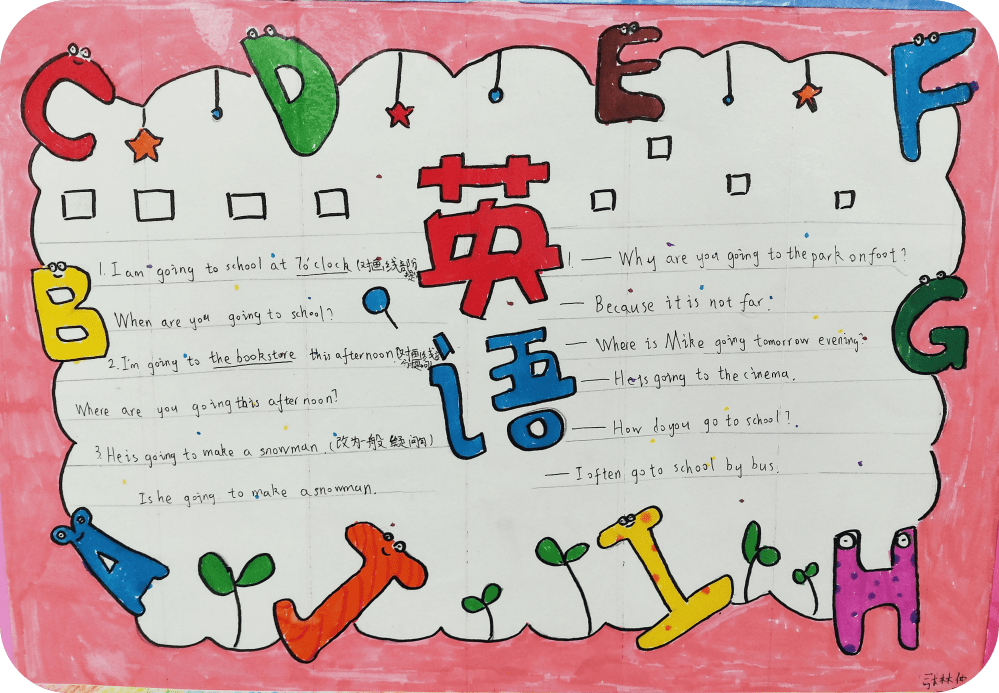 C D E F
英语
1. I am going to school at 7o'clock (对画线部分提问
When are you going to school?
2. I'm going to the bookstore this afternoon (对画线部分提问)
Where are you going this afternoon?
3. He is going to make a snowman. (改为一般疑问句)
Is he going to make a snowman.
1. — Why are you going to the park on foot?
— Because it is not far.
— Where is Mike going tomorrow evening?
— He is going to the cinema.
— How do you go to school?
— I often go to school by bus.
B
G
A J I H